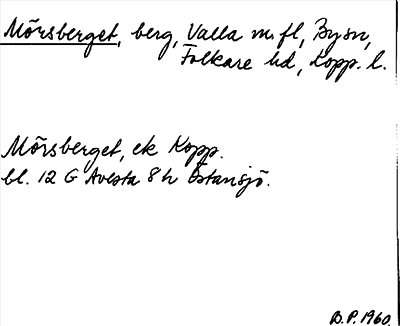 Mörsberget, berg, Valla m.fl, By sn,
Folkare hd, Kopp. l.
Mörsberget, ek Kopp.
bl. 12 G Avesta 8 h Östansjö.
B.P. 1960.